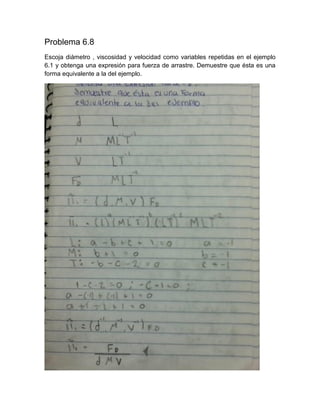 Problema 6.8
Escoja diámetro , viscosidad y velocidad como variables repetidas en el ejemplo
6.1 y obtenga una expresión para fuerza de arrastre. Demuestre que ésta es una
forma equivalente a la del ejemplo.
Demuestre que ésta es una forma
equivalente a la del ejemplo.
d L
M ML⁻¹T⁻¹
V LT⁻¹
F_D MLT⁻²
π₁ = (d, M, V) F_D
π₁ = (L)ᵃ(ML⁻¹T⁻¹)ᵇ(LT⁻¹)ᶜ MLT⁻²
L: a - b + c + 1 = 0 a = -1
M: b + 1 = 0 b = -1
T: -b - c - 2 = 0 c = -1
1 - c - 2 = 0 ; -c - 1 = 0 ;
a - (-1) + (-1) + 1 = 0
a + 1 - 1 + 1 = 0
π₁ = (d⁻¹, M⁻¹, V⁻¹) F_D
π₁ = F_D
d M V